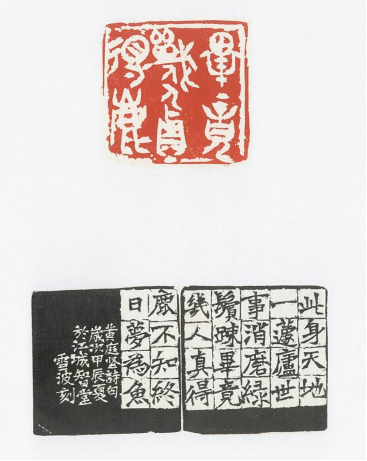 畢竟
幾人真
得鹿
此身天地
一蘧廬世
事消磨綠
鬢踈畢竟
幾人真得
鹿不知終
日夢為魚
黃庭堅詩句
歲次甲辰夏
於江城智堂
雪波刻